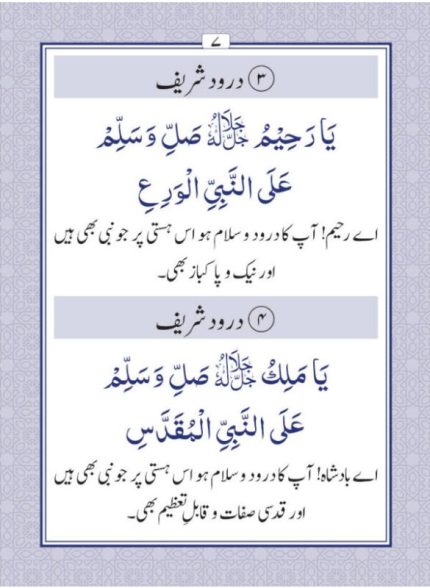 ۷
۳ درود شریف
يَا رَحِيْمُ جَلَّ جَلَالُهُ صَلِّ وَسَلِّمْ
عَلَى النَّبِيِّ الْوَرِعِ
اے رحیم! آپ کا درود و سلام ہو اس ہستی پر جو نبی بھی ہیں
اور نیک و پاکباز بھی۔
۴ درود شریف
يَا مَلِكُ جَلَّ جَلَالُهُ صَلِّ وَسَلِّمْ
عَلَى النَّبِيِّ الْمُقَدَّسِ
اے بادشاہ! آپ کا درود و سلام ہو اس ہستی پر جو نبی بھی ہیں
اور قدسی صفات و قابلِ تعظیم بھی۔